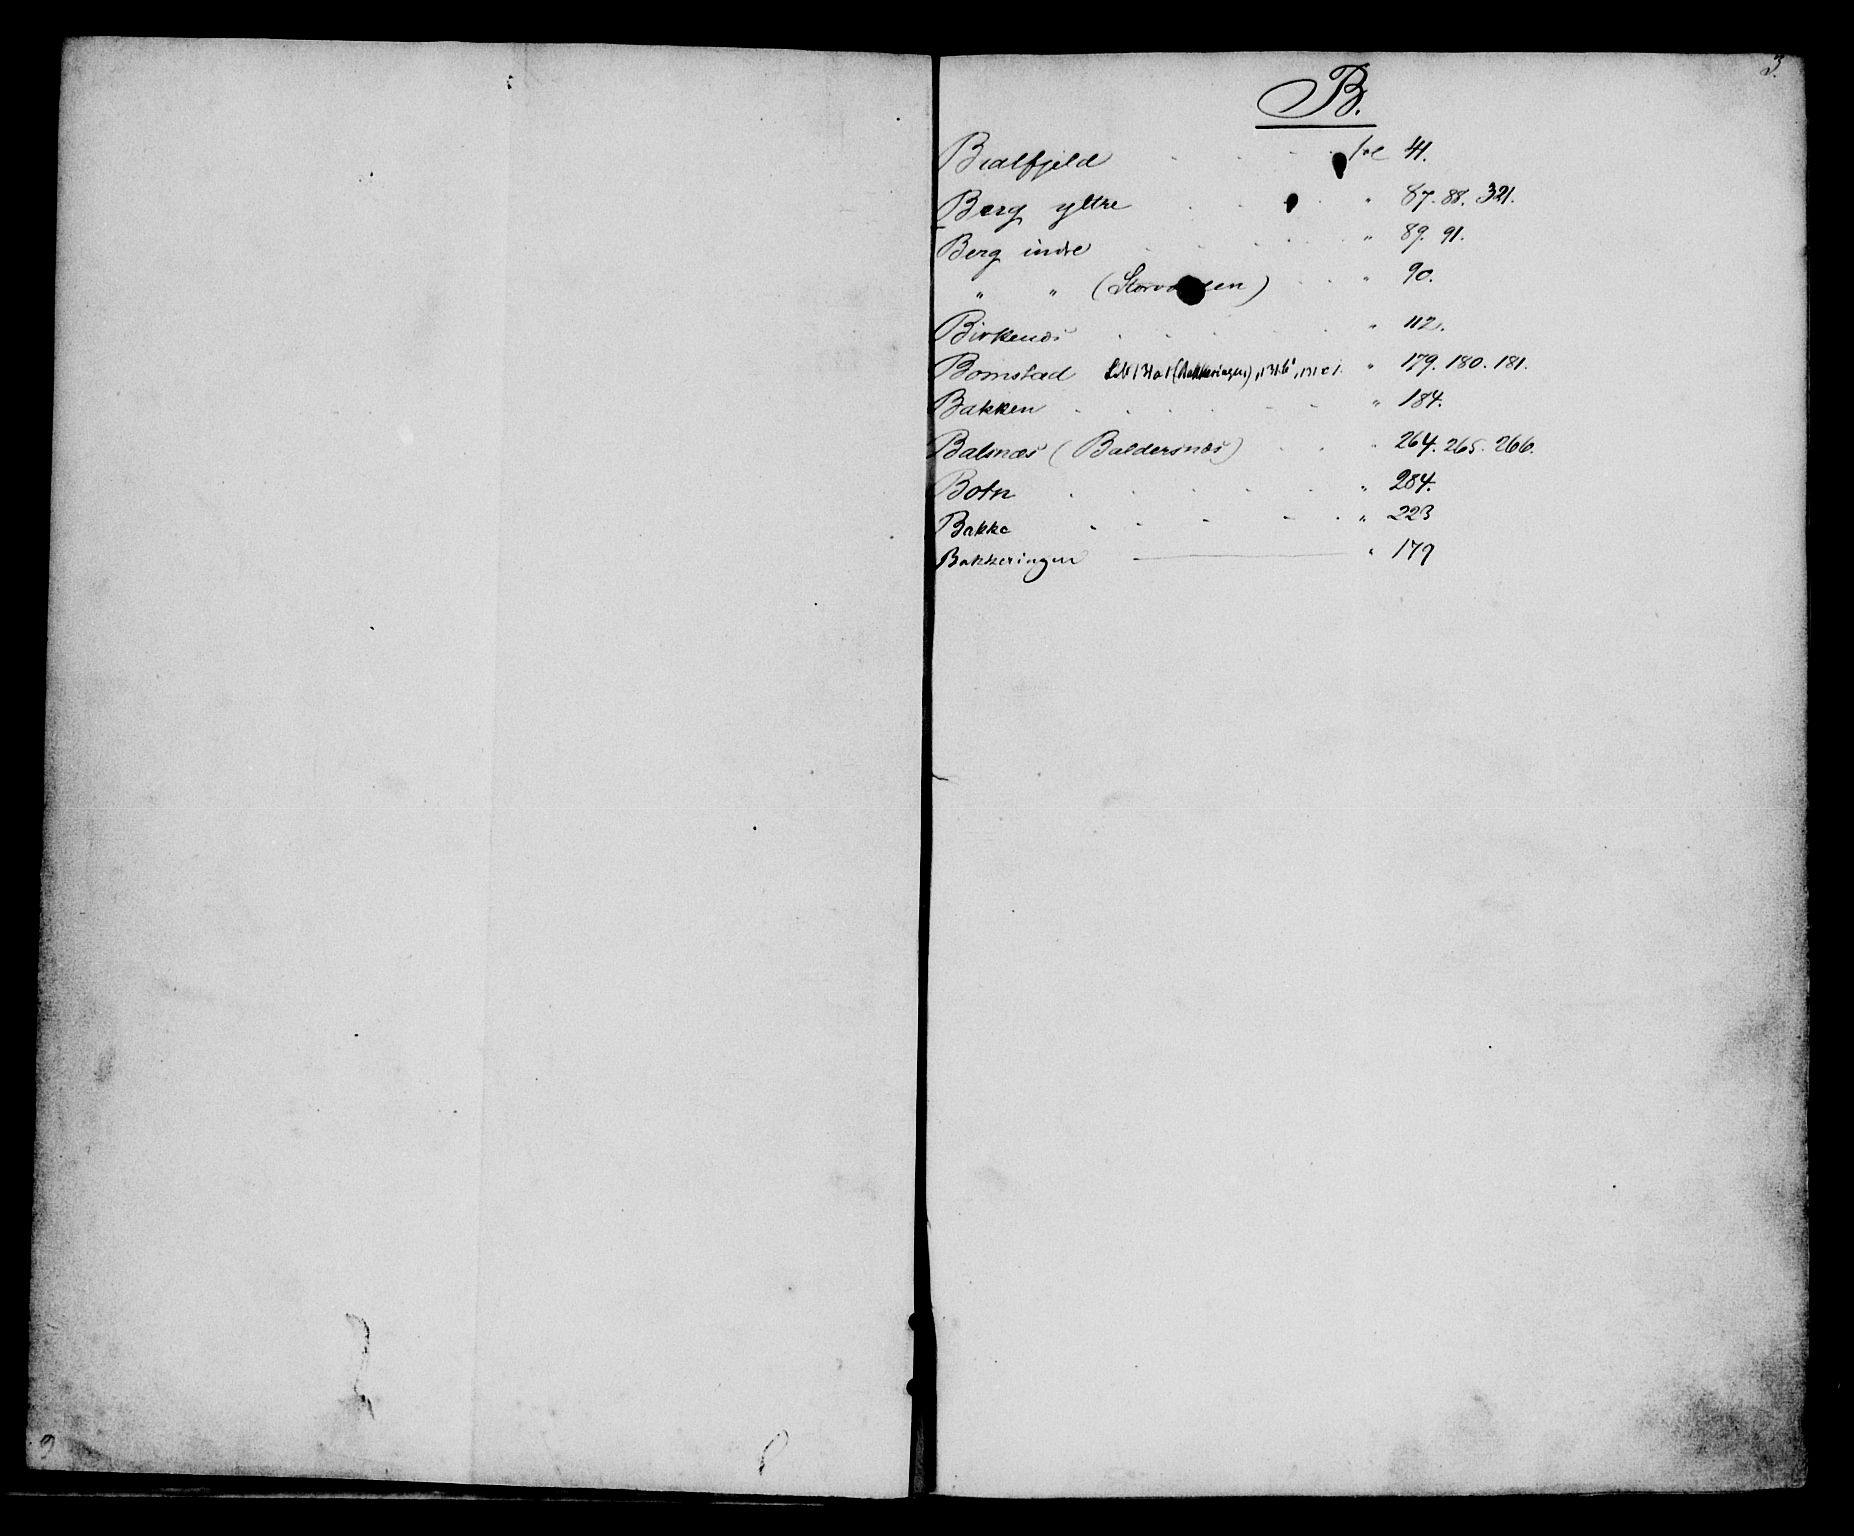 3.
B.
Bialfjeld . . . . fol 41.
Berg yttre . . . " 87. 88. 321.
Berg indre . . . . " 89. 91.
" " ( ) . . " 90.
Birkenæs . . . . . " 112.
Bomstad (Bakkeringen) " 179. 180. 181.
Bakken . . . . . . " 184.
Balsnæs (Baldersnæs) . . " 264. 265. 266.
Botn . . . . . " 284.
Bakke . . . . . " 223
Bakkeringen — " 179